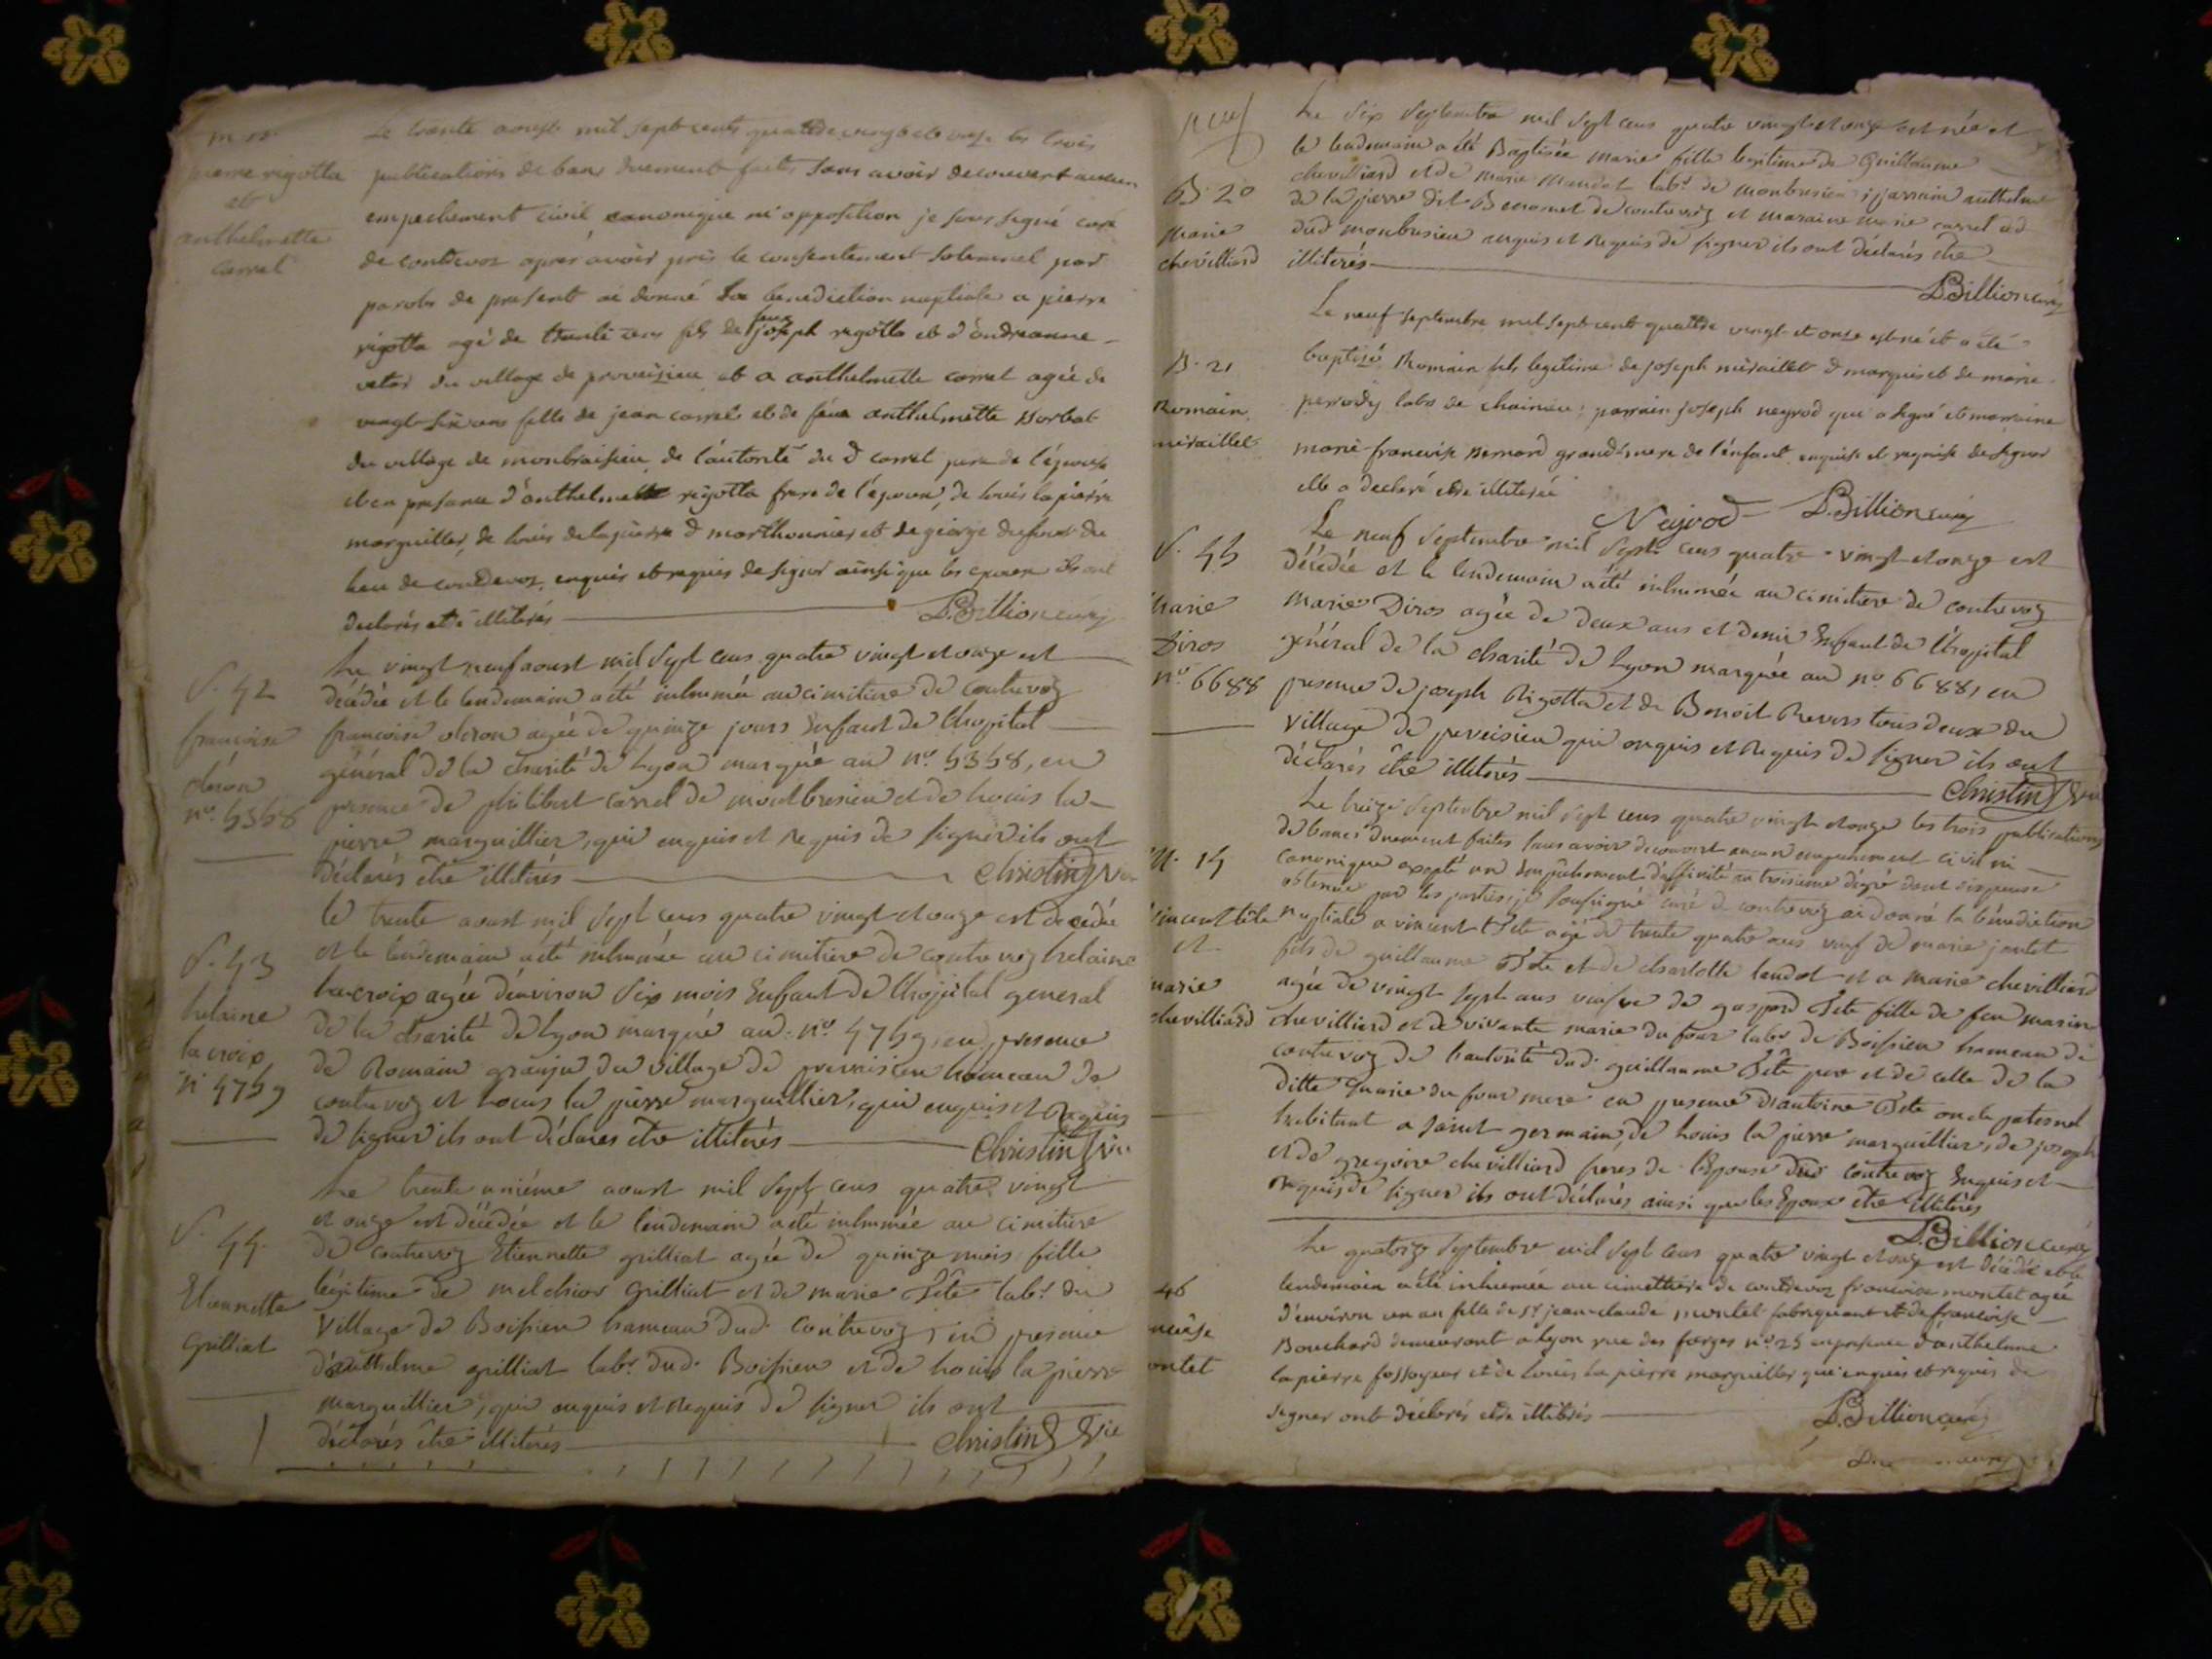 pierre rigotta
et
anthelmette
carrel
Le trente aoust mil sept cents quattre vingt et onze les trois
publications de bans duement faites sans avoir decouvert aucun
empechement civil, canonique ni opposition je sous signé curé
de contrevoz après avoir pris le consentement solemnel par
parole de present ai donné la benediction nuptiale a pierre
rigotta agé de trente ans fils de feu joseph rigotta et d'andreanne
du village de proveisieu et a anthelmette carrel agée de
vingt-six ans fille de jean carrel et de feue anthelmette
du village de monbraisieu de l'autorité du d carrel pere de l'épouse
et en presance d'anthelme rigotta frere de l'époux, de louis la pierre
marguiller, de louis delapierre d marthounier et de george dufour du
lieu de contrevoz. enquis et requis de signer ainsi que les epoux ils ont
declarés etre illiterés L. Billion curé
S. 42
francoise
oleron
n.º 5358
Le vingt neuf aoust mil sept cens quatre vingt et onze est
décédée et le lendemain a été inhumée au cimitiere de contrevoz
francoise oleron agée de quinze jours enfant de l'hopital
général de la charité de Lyon marqué au n.º 5358, en
presence de philibert carrel de montbresieu et de Louis la
pierre marguillier, qui enquis et requis de signer ils ont
déclarés être illiterés Christin Vic
S. 43
helaine
la croix
n.º 4759
le trente aoust mil sept cens quatre vingt et onze est décédée
et le lendemain a été inhumée au cimitiere de contrevoz helaine
lacroix agée d'environ six mois enfant de l'hopital general
de la charité de Lyon marqué au n.º 4759, en presence
de Romain granju du village de preveisieu hameau de
contrevoz et Louis la pierre marguillier, qui enquis et requis
de signer ils ont déclarés être illiterés Christin Vic
S. 44.
Etiennette
Grilliat
Le trente unième aoust mil sept cens quatre vingt
et onze est décédée et le lendemain a été inhumée au cimitiere
de contrevoz Etiennette grilliat agée de quinze mois fille
légitime de melchior Grilliat et de marie Tête lab.r du
village de Boissieu hameau dud. contrevoz, en presence
d'anthelme grilliat lab.r dud. Boissieu et de Louis la pierre
marguillier, qui enquis et requis de signer ils ont
déclarés être illiterés Christin Vic
B. 20
Marie
chevilliard
Le six septembre mil sept cens quatre vingt et onze est née et
le lendemain a été Baptisée marie fille legitime de Guillaume
chevilliard et de marie Mandot lab.r de monbresieu; parrain anthelme
de la pierre dit de contrevoz et maraine marie carrel
dud monbresieu enquis et requis de signer ils ont déclarés être
illiterés L. Billion curé
B. 21
Romain
miraillet
Le neuf septembre mil sept cent quattre vingt et onze est né et a été
baptisé Romain fils legitime de joseph miraillet d marquis et de marie
labr de chainieu; parrain joseph neyrod qui a signé et marraine
marie francoise Bernard grand-mere de l'enfant enquise et requise de signer
elle a declaré etre illiterée
Neyrod L. Billion curé
S. 45
Marie
Diros
n.º 6688
Le neuf septembre mil sept cens quatre vingt et onze est
décédée et le lendemain a été inhumée au cimitiere de contrevoz
Marie Diros agée de deux ans et demi enfant de l'hopital
général de la charité de Lyon marquée au n.º 6688, en
presence de joseph Rigotta et de Benoit Revers tous deux du
village de preveisieu qui enquis et requis de signer ils ont
déclarés être illiterés Christin Vic
M. 14
vincent tête
et
marie
chevilliard
Le treize septembre mil sept cens quatre vingt et onze les trois publications
de bancs duement faites sans avoir decouvert aucun empechement civil ni
canonique excepté un empêchement d'affinité au troisieme dégré dont dispense
obtenue par les parties; je soussigné curé de contrevoz ai donné la bénediction
nuptiale a vincent Tête agé de trente quatre ans veuf de marie jantet
fils de guillaume Tête et de charlotte landot et a marie chevilliard
agée de vingt sept ans veufve de gaspard Tete fille de feu marin
chevilliard et de vivante marie du four labr de Boissieu hameau de
contrevoz de l'autorité dud. guillaume Tête pere et de celle de la
ditte marie du four mere en presence d'antoine Tete oncle paternel
habitant a saint germain, de Louis la pierre marguillier, de joseph
et de gregoire chevilliard freres de l'Epouse dud contrevoz Enquis et
requis de signer ils ont déclarés ainsi que les Epoux être illiterés
L. Billion curé
46
Le quatorze septembre mil sept cens quatre vingt et onze est décédée et le
lendemain a été inhumée au cimettiere de contrevoz francoise montet agée
d'environ un an fille de s.r jean-claude montet fabriquant et de francoise
Bouchard demeurant a Lyon rue des forges n.º 25 en presence d'anthelme
lapierre fossoyeur et de louis la pierre marguiller qui enquis et requis de
signer ont déclarés etre illiterés L. Billion curé